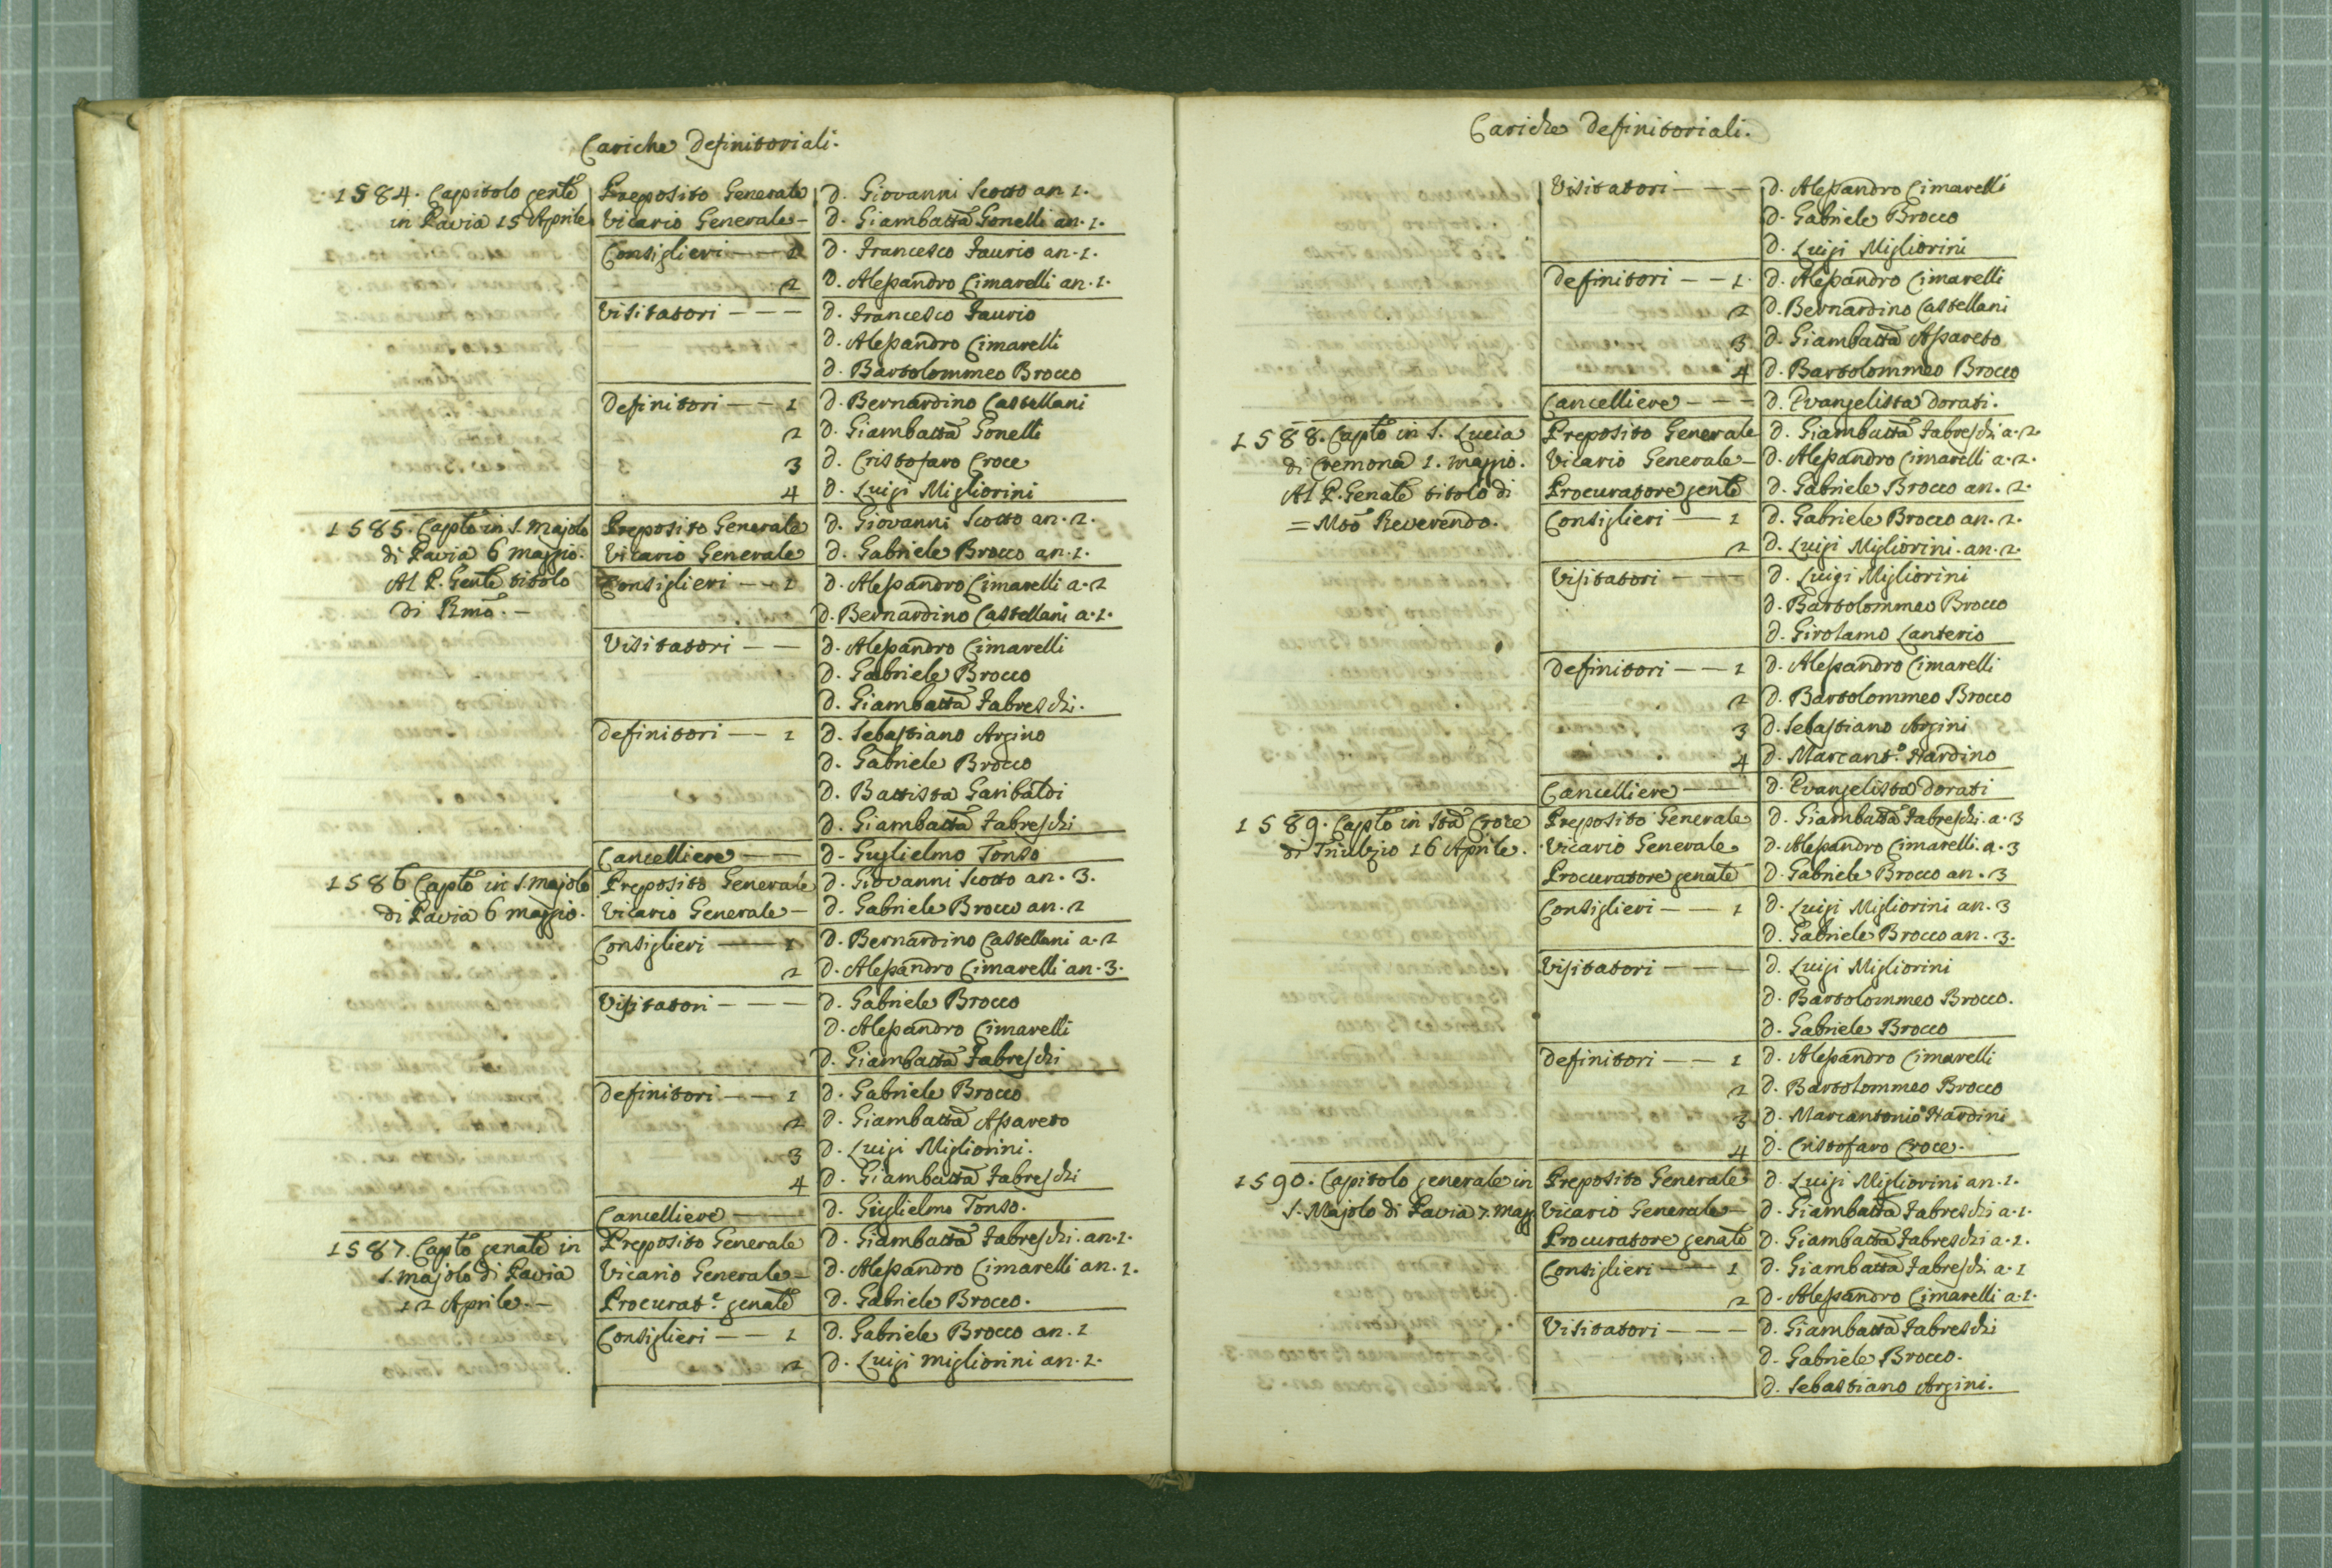 Cariche Definitoriali.
1584. Capitolo genle Preposito Generale D. Giovanni Scotto an 1.
in Pavia 15 Aprile Vicario Generale - D. Giambatta Gonelli an. 1.
Consiglieri - - 1 D. Francesco Faurio an. 1.
2 D. Alessandro Cimarelli an. 1.
Visitatori - - - D. Francesco Faurio
D. Alessandro Cimarelli
D. Bartolommeo Brocco
Definitori - - 1 D. Bernardino Castellani
2 D. Giambatta Gonelli
3 D. Cristofaro Croce
4 D. Luigi Migliorini
1585. Caplo in S. Majolo Preposito Generale D. Giovanni Scotto an. 2.
di Pavia 6 maggio. Vicario Generale D. Gabriele Brocco an. 1.
Al P. Genle titolo Consiglieri - - 1 D. Alessandro Cimarelli a. 2
di Rmo. - D. Bernardino Castellani a. 1.
Visitatori - - D. Alessandro Cimarelli
D. Gabriele Brocco
D. Giambatta Fabreschi.
Definitori - - 1 D. Sebastiano Argino
D. Gabriele Brocco
D. Battista Garibaldi
D. Giambatta Fabreschi
Cancelliere - - D. Guglielmo Tonso
1586 Caplo in S. Majolo Preposito Generale D. Giovanni Scotto an. 3.
di Pavia 6 maggio. Vicario Generale - D. Gabriele Brocco an. 2
Consiglieri - - 1 D. Bernardino Castellani a. 2
2 D. Alessandro Cimarelli an. 3.
Visitatori - - - D. Gabriele Brocco
D. Alessandro Cimarelli
D. Giambatta Fabreschi
Definitori - - 1 D. Gabriele Brocco
2 D. Giambatta Assareto
3 D. Luigi Migliorini.
4 D. Giambatta Fabreschi
Cancelliere - - D. Guglielmo Tonso.
1587. Caplo genale in Preposito Generale D. Giambatta Fabreschi. an. 1.
S. Majolo di Pavia Vicario Generale - D. Alessandro Cimarelli an. 1.
12 Aprile. - Procurat.e genale D. Gabriele Brocco.
Consiglieri - - 1 D. Gabriele Brocco an. 1
2 D. Luigi Migliorini an. 1.
Cariche Definitoriali.
Visitatori - - - D. Alessandro Cimarelli
D. Gabriele Brocco
D. Luigi Migliorini
Definitori - - 1. D. Alessandro Cimarelli
2 D. Bernardino Castellani
3 D. Giambatta Assareto
4 D. Bartolommeo Brocco
Cancelliere - - - D. Evangelista Dorati.
1588. Caplo in S. Lucia Preposito Generale D. Giambatta Fabreschi a. 2
di Cremona 1. maggio. Vicario Generale - D. Alessandro Cimarelli a. 2.
Al P. Genale titolo di Procuratore genle D. Gabriele Brocco an. 2.
= Moo Reverendo. Consiglieri - - 1 D. Gabriele Brocco an. 2.
2 D. Luigi Migliorini. an. 2
Visitatori - - - D. Luigi Migliorini
D. Bartolommeo Brocco
D. Girolamo Lanterio
Definitori - - 1 D. Alessandro Cimarelli
2 D. Bartolommeo Brocco
3 D. Sebastiano Argini
4 D. Marcant.o Nardino
Cancelliere - - D. Evangelista Dorati
1589. Caplo in Sta Croce Preposito Generale D. Giambatta Fabreschi. a. 3
di Triulzio 16 Aprile. Vicario Generale D. Alessandro Cimarelli. a. 3
Procuratore genale D. Gabriele Brocco an. 3
Consiglieri - - 1 D. Luigi Migliorini an. 3
D. Gabriele Brocco an. 3.
Visitatori - - - D. Luigi Migliorini
D. Bartolommeo Brocco.
D. Gabriele Brocco
Definitori - - 1 D. Alessandro Cimarelli
2 D. Bartolommeo Brocco
3 D. Marcantonio Nardini
4 D. Cristofaro Croce.
1590. Capitolo generale in Preposito Generale D. Luigi Migliorini an. 1.
S. Majolo di Pavia 7. magg Vicario Generale - D. Giambatta Fabreschi a. 1.
Procuratore genale D. Giambatta Fabreschi a. 1.
Consiglieri - - 1 D. Giambatta Fabreschi a. 1
2 D. Alessandro Cimarelli a. 1.
Visitatori - - - D. Giambatta Fabreschi
D. Gabriele Brocco.
D. Sebastiano Argini.